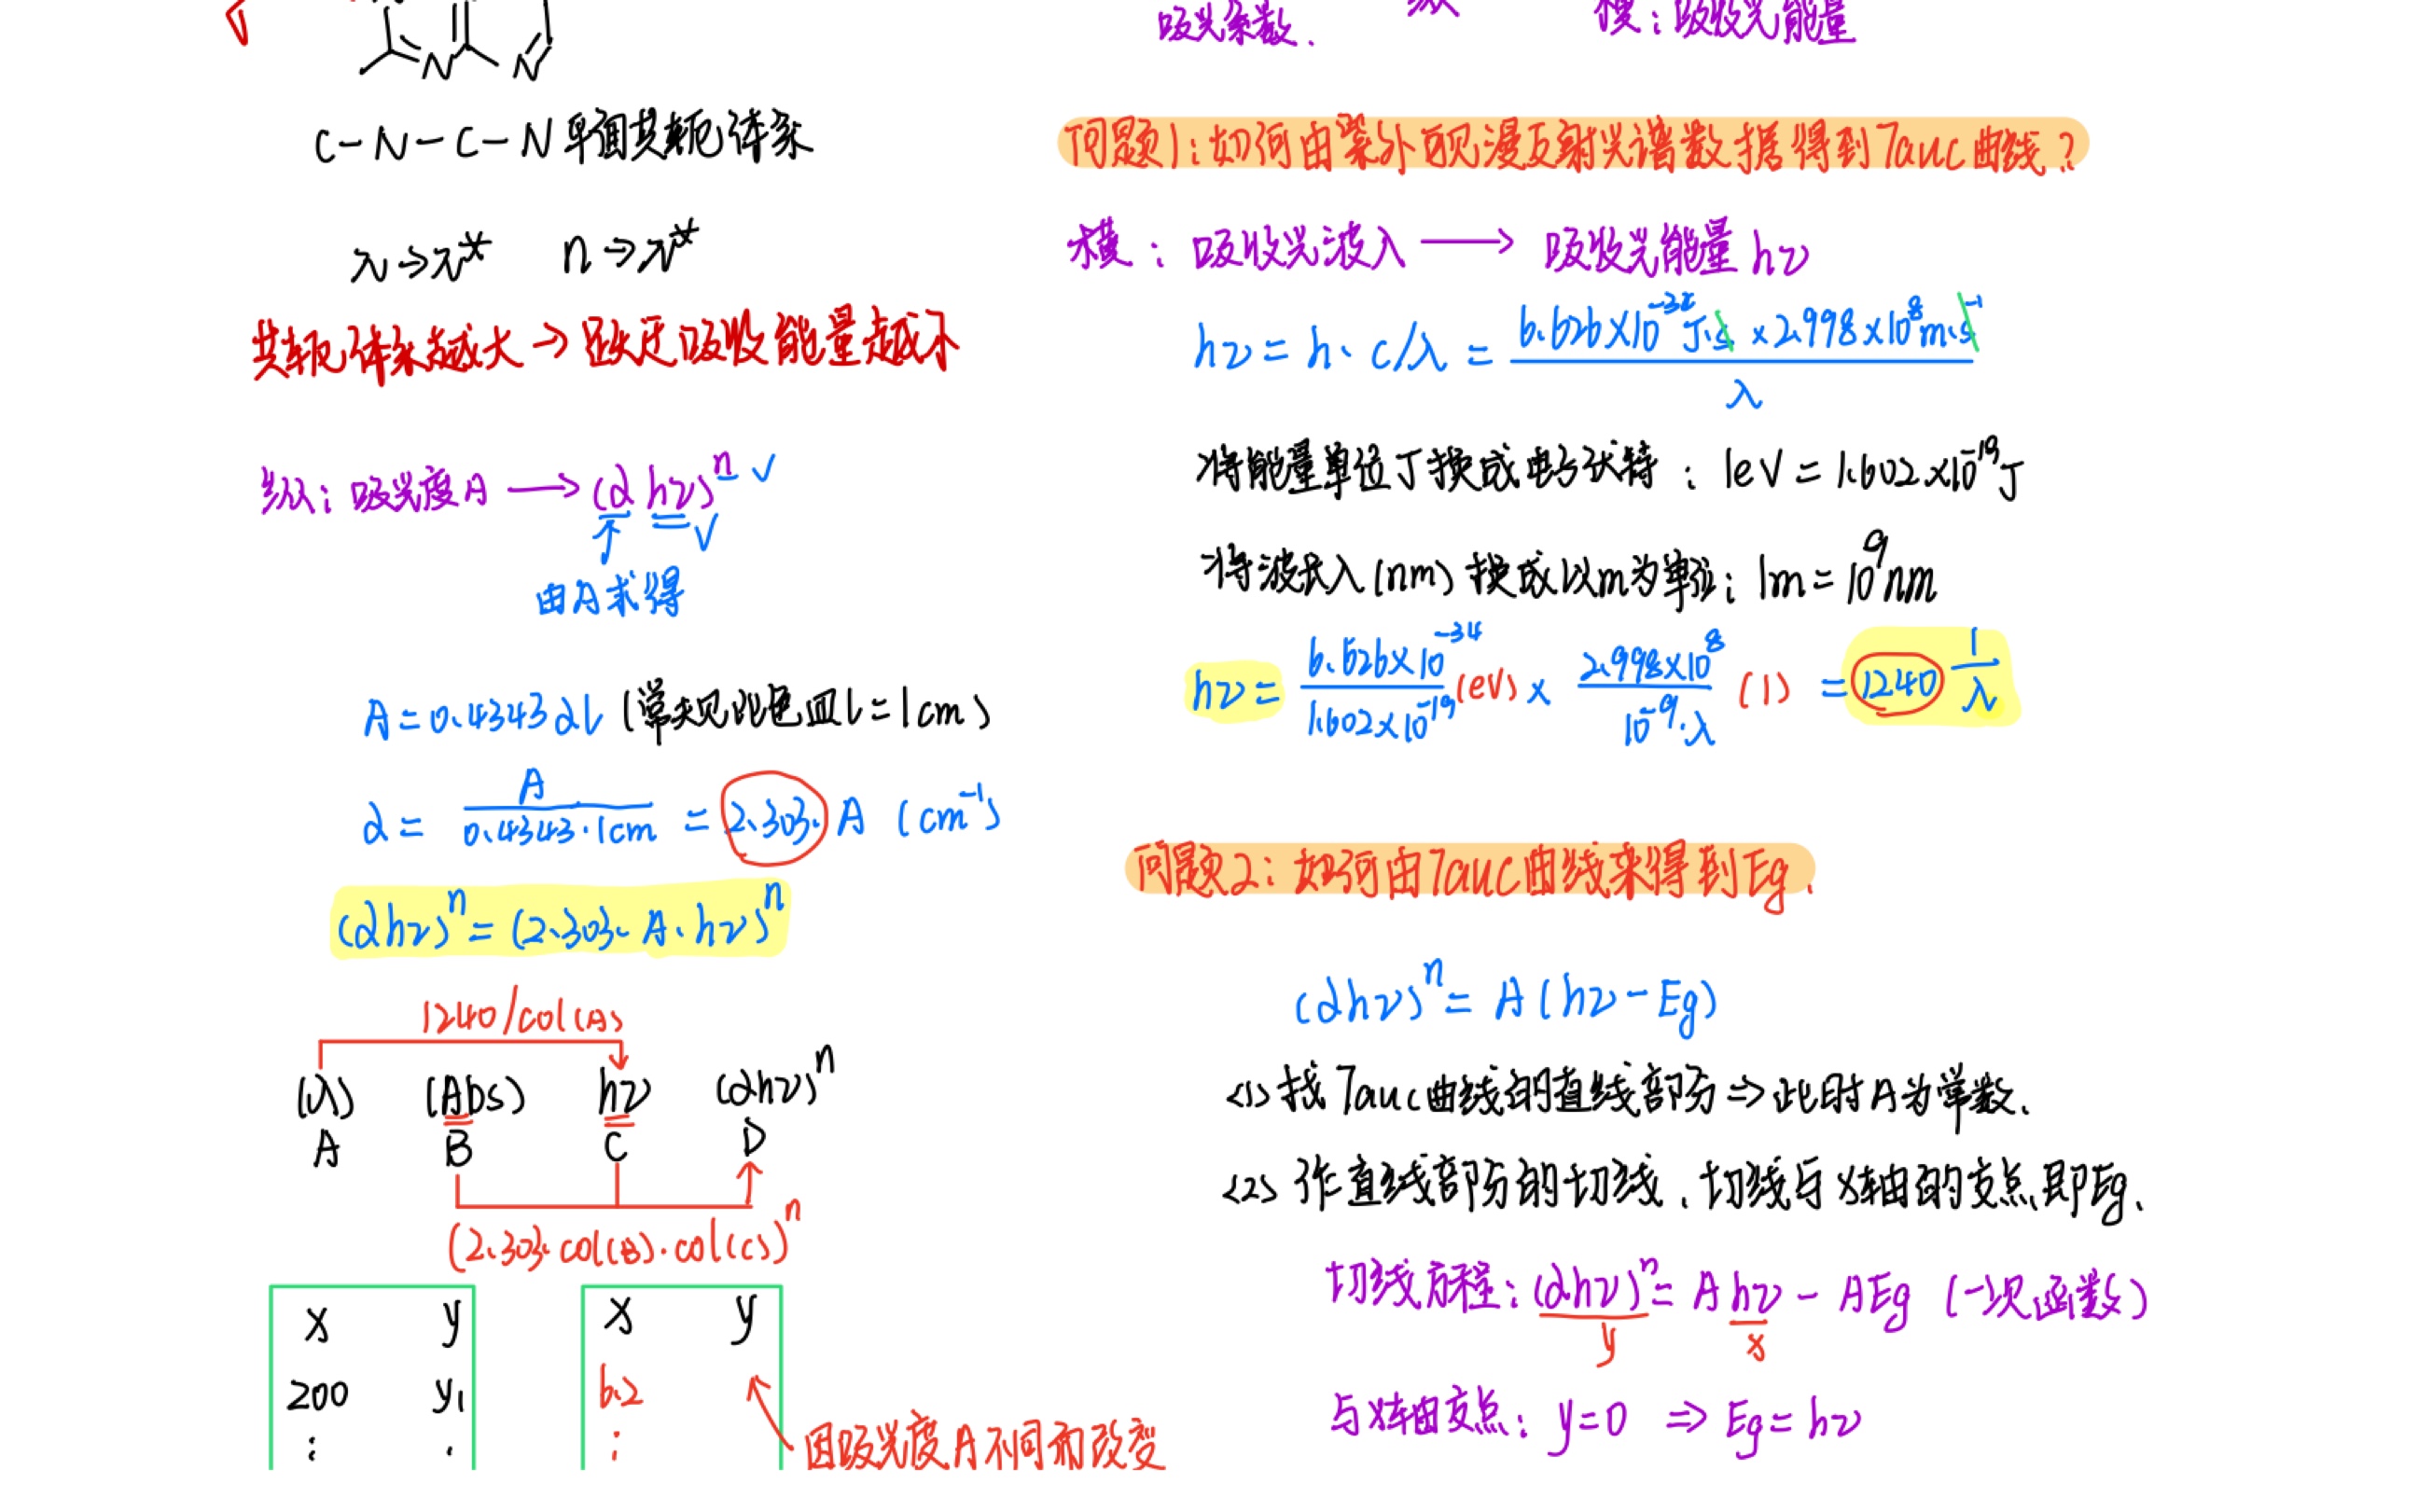 N N
C-N-C-N平面共轭体系
π→π* n→π*
共轭体系越大→跃迁吸收能量越小
纵:吸光度A → (αhν)ⁿ ✓
↑ ✓
由A求得
A=0.4343αl (常见比色皿l=1cm)
α= A/(0.4343·1cm) = 2.303·A (cm⁻¹)
(αhν)ⁿ=(2.303·A·hν)ⁿ
1240/col(A)
(λ) (Abs) hν (αhν)ⁿ
A B C D
(2.303·col(B)·col(C))ⁿ
x y x y
200 y₁ 6.2
: · :
因吸光度A不同而改变
吸光系数. 横:吸收光能量
问题1:如何由紫外可见漫反射光谱数据得到Tauc曲线?
横:吸收光波λ → 吸收光能量hν
hν=h·c/λ = (6.626×10⁻³⁴J·s ×2.998×10⁸m·s⁻¹)/λ
将能量单位J换成电子伏特:1eV=1.602×10⁻¹⁹J
将波长λ(nm)换成以m为单位:1m=10⁹nm
hν= (6.626×10⁻³⁴)/(1.602×10⁻¹⁹)(eV) × (2.998×10⁸)/(10⁻⁹·λ) (1) =1240 1/λ
问题2:如何由Tauc曲线来得到Eg.
(αhν)ⁿ=A(hν-Eg)
<1>找Tauc曲线的直线部分⇒此时A为常数.
<2>作直线部分的切线.切线与x轴的交点即Eg.
切线方程:(αhν)ⁿ=Ahν-AEg (一次函数)
y x
与x轴交点:y=0 ⇒ Eg=hν